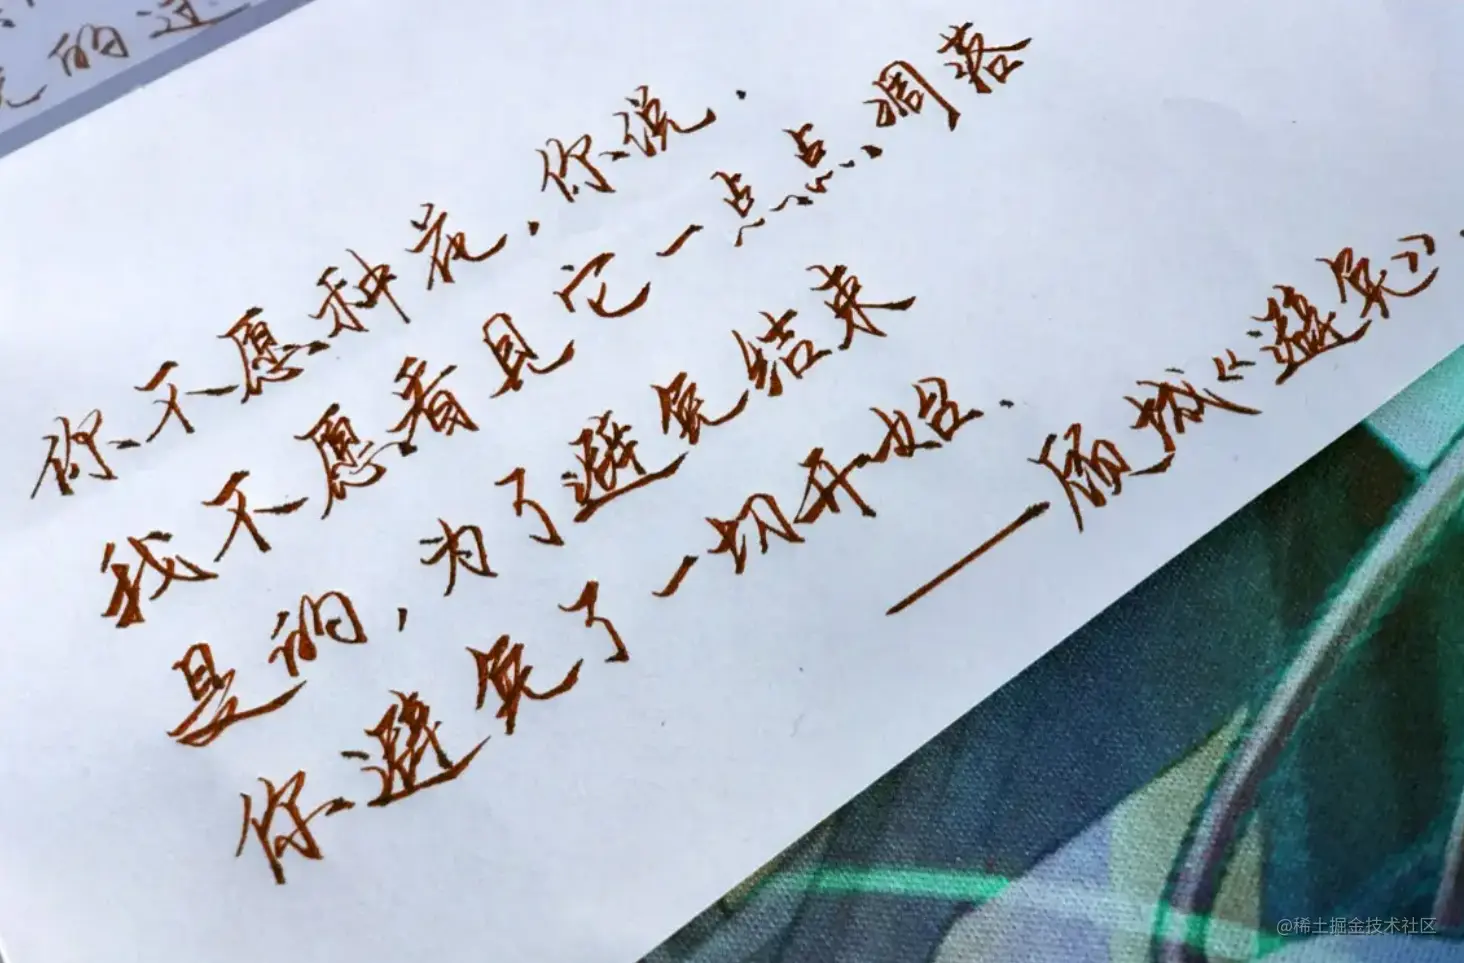 的过
你不愿种花,你说.
我不愿看见它一点点凋落
是的,为了避免结束
你避免了一切开始.
——顾城《避免》.
@稀土掘金技术社区